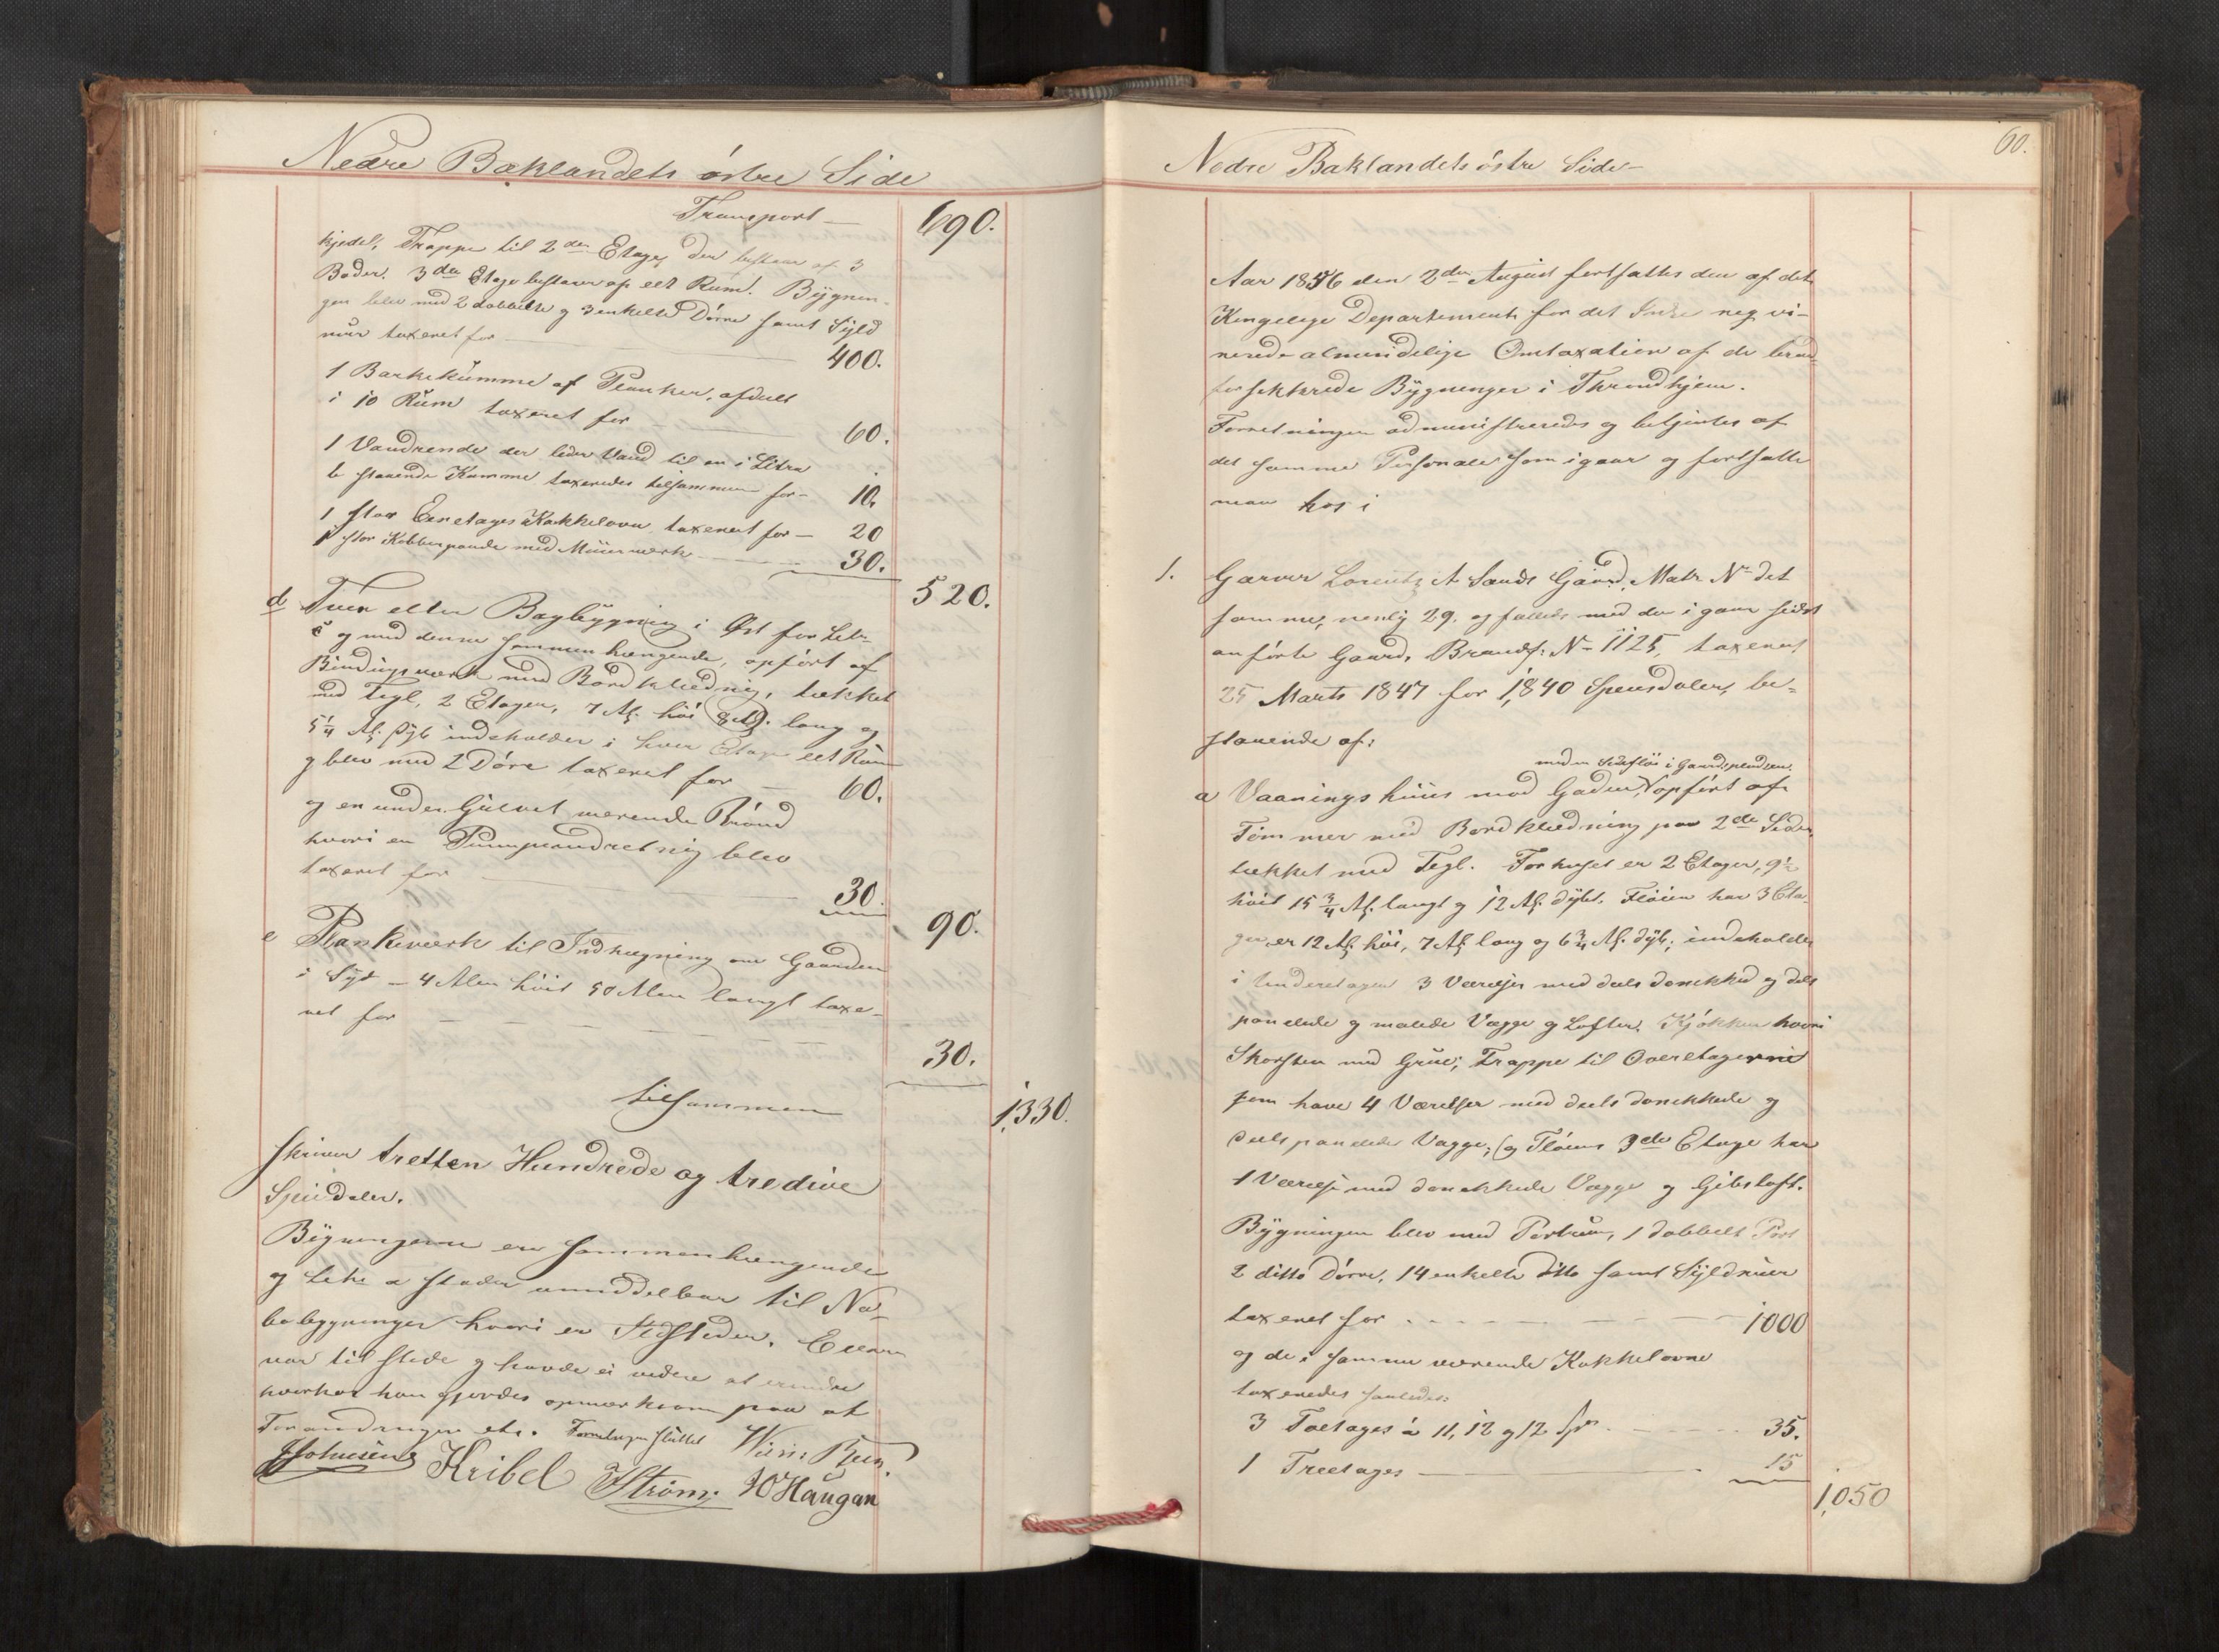 Nedre Baklandets östre Side
Transport – 690.
kjedel, Trappe til 2den Etage, der bestaar af 3
Boder. 3die Etage bestaar af eet Rum. Bygnin-
gen blev med 2 dobbelte og 3 enkelte Dörre samt Syld
muur taxeret for 400.
1 Barkekumme af Planker, afdeelt
i 10 Rum taxeret for 60.
1 Vandrende der leder Vand til en i Litra
b staaende Kumme taxeredes tilsammen for – 10.
1 stor Eenetages Kakkelovn taxeret for – 20
1 stor Kobberpande med Muurværk 30.
520.
d Tvær eller Bagbygning i Öst for Litr.
c og med denne sammenhængende, opfört af
Bindingsværk med Bordklædning, tækket
med Tegl, 2 Etager, 7 Al. höi 8 Al. lang og
5¼ Al. dyb indeholder i hver Etage eet Rum
og blev med 2 Döre taxeret for – 60.
og en under Gulvet værende Brönd
hvori en Pumpeindretning blev
taxeret for 30.
90.
e Plankeværk til Indhegning om Gaarden
i Syd – 4 Alen höit 50 Alen langt taxe-
ret for 30.
tilsammen 1,330.
skriver tretten Hundrede og tredive
Speciedaler.
Bygningerne ere sammenhængende
og Litr. a stöder umiddelbar til Na-
bobygninger hvori er Ildsteder. Eieren
var tilstede og havde ei videre at erindre
hvorhos han gjordes opmærksom paa at
Forandringer etc. Forretningen sluttet
JJohnsen Kribel JStröm. JOHaugan
60.
Nedre Baklandets östre Side –
Aar 1856 den 2den August fortsattes den af det
Kongelige Departement for det Indre reqvi-
rerede almindelige Omtaxation af de brand-
forsikkrede Bygninger i Throndhjem.
Forretningen administreredes og betjentes af
det samme Personale som igaar og fortsatte
man hos i
1. Garver Lorentz A Sands Gaard, Matr. No det
samme, nemlig 29. og fælleds med den i gaar sidst
anförte Gaard, Brandf: No 1125, taxeret
25 Marts 1847 for 1,840 Speciedaler, be-
staaende af:
med en Sidefløi i Gaardspladsen.
a Vaaningshuus mod Gaden, opfört af
Tömmer med Bordklædning paa 2de Sider
tækket med Tegl. Forhuset er 2 Etager, 9½
höit 15¾ Al. langt og 12 Al. dybt. Flöien har 3 Eta-
ger, er 12 Al. höi, 7 Al. lang og 6¾ Al. dyb; indeholder
i Underetagen 3 Værelser med deels donekkede og deels
panelede og malede Vægge og Lofter. Kjökken hvori
Skorsten med Grue; Trappe til Overetagerne
som have 4 Værelser med deels donekkede og
deels panelede Vægge; og Flöiens 3die Etage har
1 Værelse med donekkede Vægge og Gibsloft.
Bygningen blev med Portrum, 1 dobbelt Port
2 ditto Dörre, 14 enkelte ditto samt Syldmuur
taxeret for 1000
og de i samme værende Kakkelovne
taxeredes saaledes:
3 Toetages à 11, 12 og 12 Spd 35.
1 Treetages 15
1,050